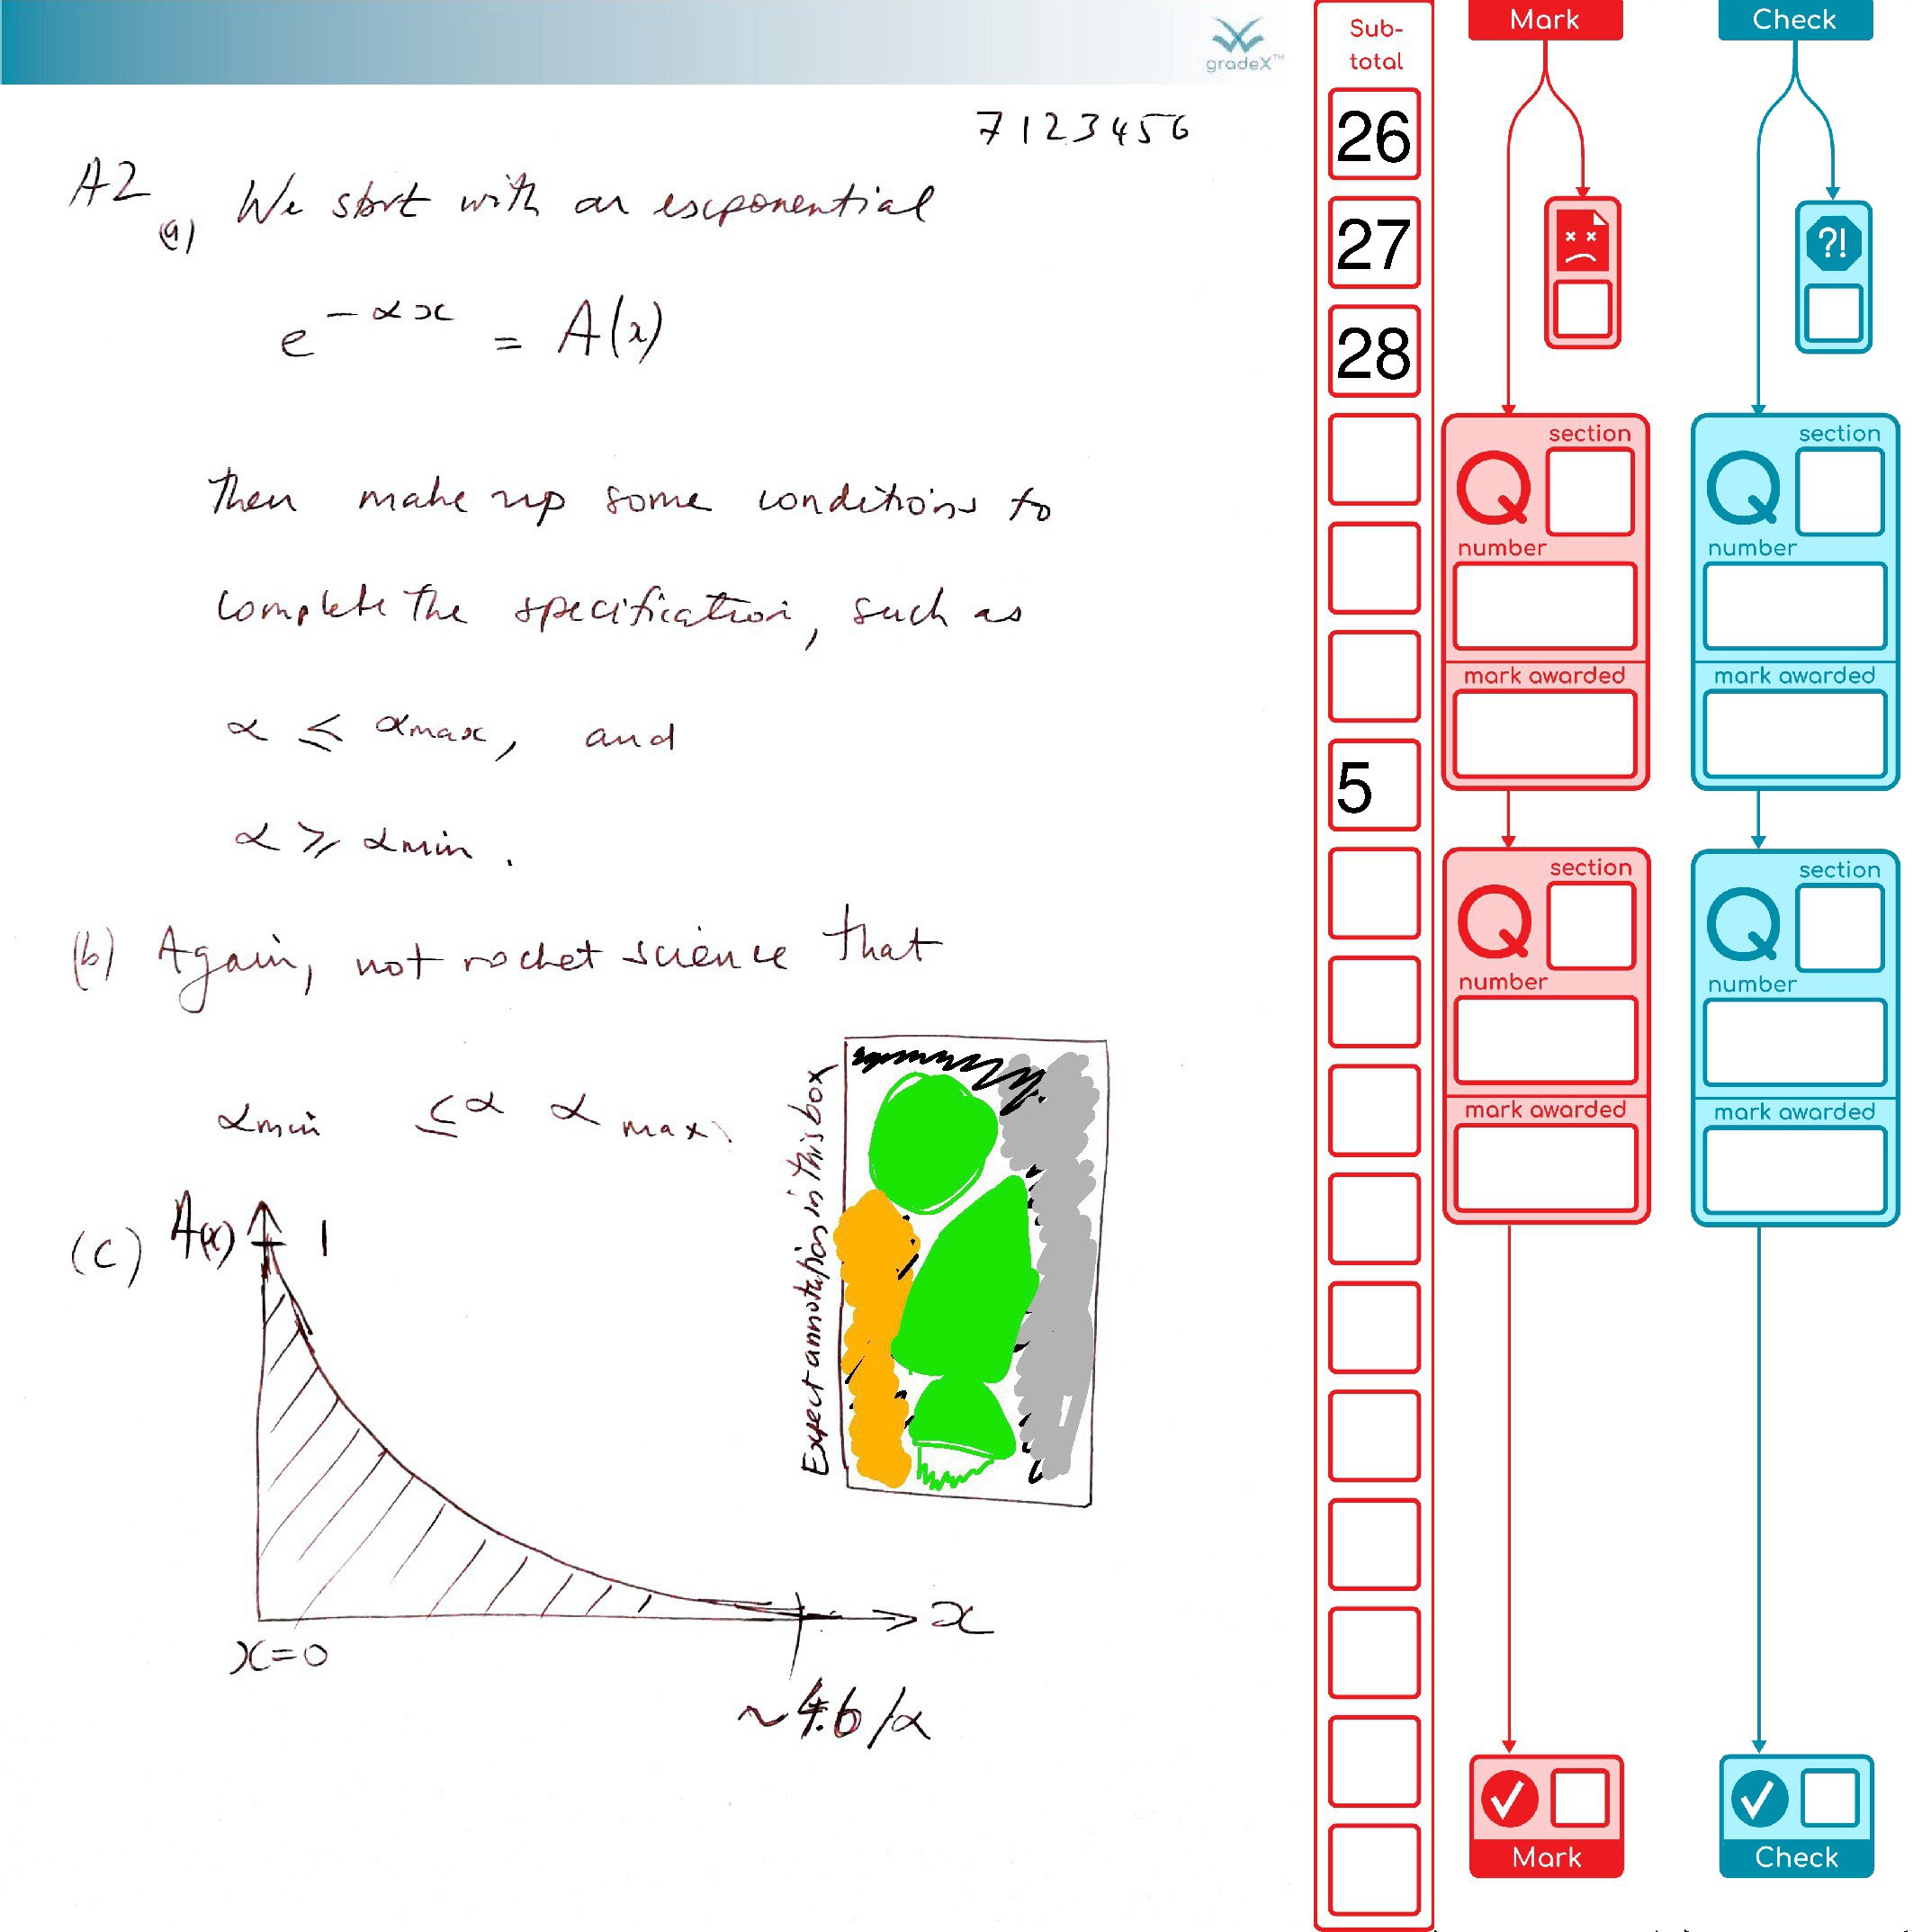 gradeX™
7123456
A2
(a) We start with an exponential
e^{-αx} = A(x)
then make up some conditions to
complete the specification, such as
α ≤ αmax, and
α ≥ αmin.
(b) Again, not rocket science that
αmin ≤ α αmax.
Expect annotations in this box
(c) A(x) 1
x
x=0
~4.6/α
Sub-
total
26
27
28
5
Mark
?!
section
Q
number
mark awarded
section
Q
number
mark awarded
Mark
Check
section
Q
number
mark awarded
section
Q
number
mark awarded
Check